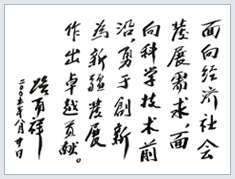 面向经济社会
發展需求,面
向科学技术前
沿,勇于創新
为新疆發展
作出卓越贡献。
路甬祥
二〇〇五年八月廿日